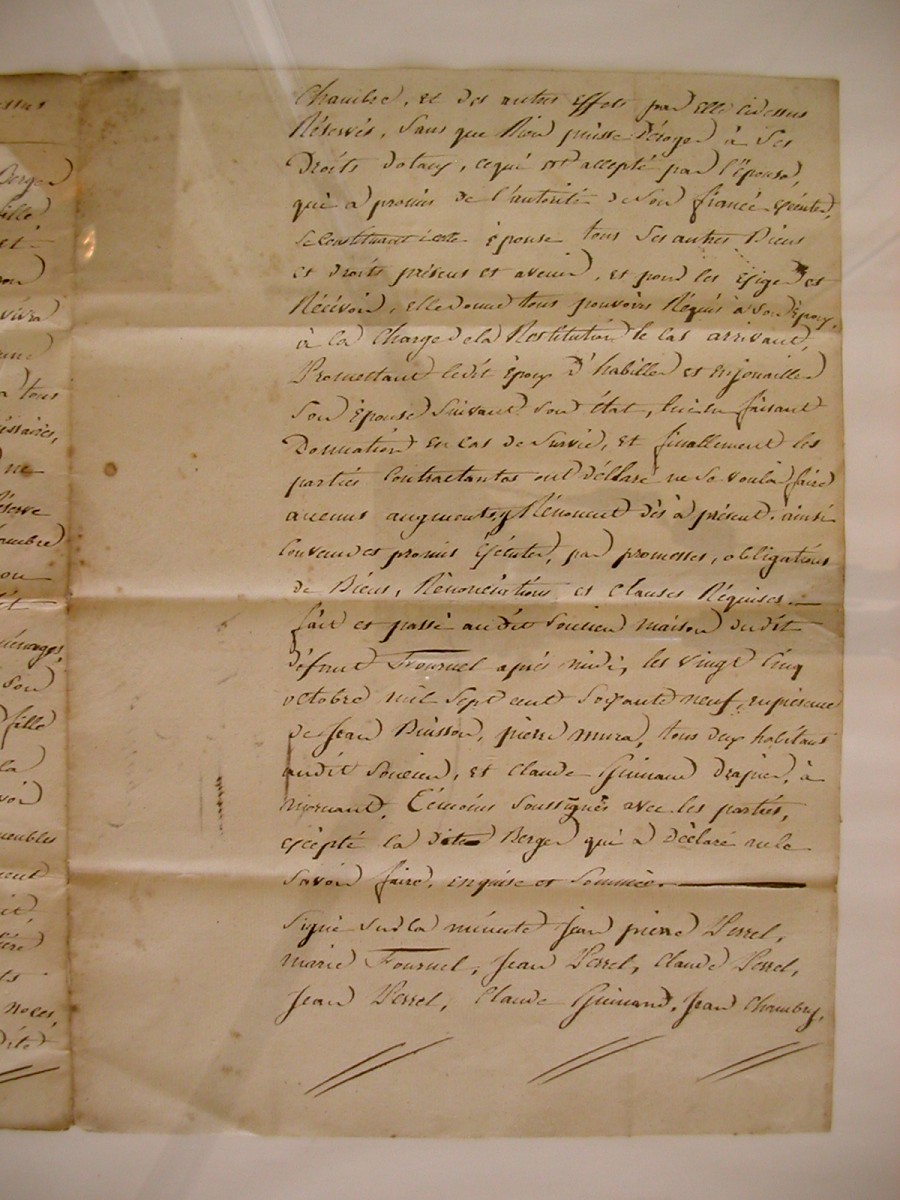 essus
Berger
fille
et
vivra
a tous
ne
Réserve
ou
son
fille
la
meubles
noces
Chambre, et des autres Effets par elle cidessus
Réservés, Sans que Rien puisse déroger à Ses
Droits dotaux, cequi est accepté par l'épouse,
qui a promis de l'autorité de Son fiancé
Se Constituant icelle épouse tous Ses autres Biens
et droits présens et avenir, et pour les Exiger et
Récévoir, elle donne tous pouvoirs Réquis à Son Epoux,
à la Charge de la Restitution le Cas arrivant,
Promettant ledit époux d'habiller et enjoailler
Son épouse Suivant Son état, lui en faisant
Donnation en Cas de Survie, et finallement les
parties Contractantes ont déclaré ne Se vouloir faire
aucuns augments, y Rénoncent dès à présent, ainsi
Convenu et promis Exécuter, par promesses, obligations
de Biens, Rénonciations et Clauses Réquises.—
fait et passé audit Soucieu maison dudit
défunt Fournel après midi, les vingt Cinq
octobre mil Sept cent Soixante neuf, en présence
de Jean Buisson, pierre mura, tous deux habitant
audit Soucieu, et Claude Guinand drapier, à
mornant, Témoins Soussignés avec les parties,
excepté la dite Berger qui a déclaré ne le
Savoir faire, enquise et Sommée.—
Signé Sur la minute Jean pierre Perrel,
marie Fournel, Jean Perrel, Claude Perrel,
Jean Perrel, Claude Guinand, Jean Chambry,